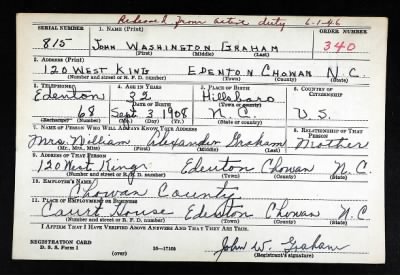 Released from active duty 6-1-46
SERIAL NUMBER 1. NAME (Print) ORDER NUMBER
815 JOHN WASHINGTON GRAHAM 340
(First) (Middle) (Last)
2. ADDRESS (Print)
120 WEST KING EDENTON CHOWAN N.C.
(Number and street or R. F. D. number) (Town) (County) (State)
3. TELEPHONE 4. AGE IN YEARS 5. PLACE OF BIRTH 6. COUNTRY OF CITIZENSHIP
Edenton 32 Hillsboro
DATE OF BIRTH (Town or county)
68 Sept 3 1908 N.C. U.S.
(Exchange) (Number) (Mo.) (Day) (Yr.) (State or country)
7. NAME OF PERSON WHO WILL ALWAYS KNOW YOUR ADDRESS 8. RELATIONSHIP OF THAT PERSON
Mrs. William Alexander Graham Mother
(Mr., Mrs., Miss) (First) (Middle) (Last)
9. ADDRESS OF THAT PERSON
120 West King Edenton Chowan N.C.
(Number and street or R. F. D. number) (Town) (County) (State)
10. EMPLOYER'S NAME
Chowan County
11. PLACE OF EMPLOYMENT OR BUSINESS
Court House Edenton Chowan N.C.
(Number and street or R. F. D. number) (Town) (County) (State)
I AFFIRM THAT I HAVE VERIFIED ABOVE ANSWERS AND THAT THEY ARE TRUE.
REGISTRATION CARD
D. S. S. Form 1 (over) 16—17105 John W. Graham
(Registrant's signature)